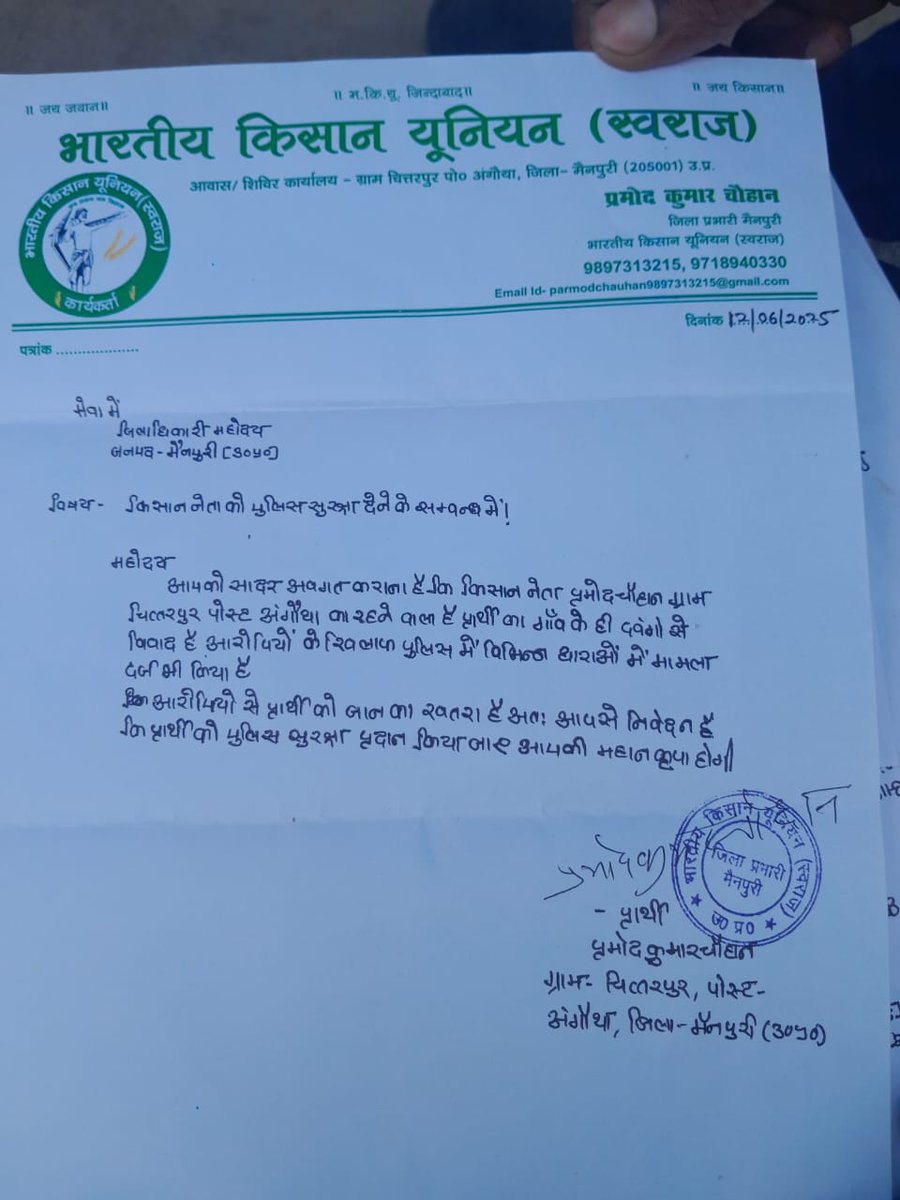 ॥ जय जवान॥
॥ म.कि.यू. जिन्दाबाद॥
॥ जय किसान॥
भारतीय किसान यूनियन (स्वराज)
आवास/ शिविर कार्यालय – ग्राम चित्तरपुर पो० अंगौथा, जिला– मैनपुरी (205001) उ.प्र.
भारतीय किसान यूनियन (स्वराज)
कार्यकर्ता
प्रमोद कुमार चौहान
जिला प्रभारी मैनपुरी
भारतीय किसान यूनियन (स्वराज)
9897313215, 9718940330
Email Id- parmodchauhan9897313215@gmail.com
पत्रांक ...................
दिनांक 17/06/2025
सेवा में
जिलाधिकारी महोदय
जनपद - मैनपुरी (उ०प्र०)
विषय - किसान नेता को पुलिस सुरक्षा देने के सम्बन्ध में!
महोदय
आपको सादर अवगत कराना है कि किसान नेता प्रमोद चौहान ग्राम
चित्तरपुर पोस्ट अंगौथा का रहने वाला है प्रार्थी का गाँव के ही दवंगो से
विवाद है आरोपियों के खिलाफ पुलिस में विभिन्न धाराओं में मामला
दर्ज भी किया है
आरोपियो से प्रार्थी को जान का खतरा है अतः आपसे निवेदन है
कि प्रार्थी को पुलिस सुरक्षा प्रदान किया जाए आपकी महान कृपा होगी
भारतीय किसान यूनियन (स्वराज)
जिला प्रभारी
मैनपुरी
उ० प्र०
- प्रार्थी
प्रमोद कुमार चौहान
ग्राम- चित्तरपुर, पोस्ट-
अंगौथा, जिला-मैनपुरी (उ०प्र०)